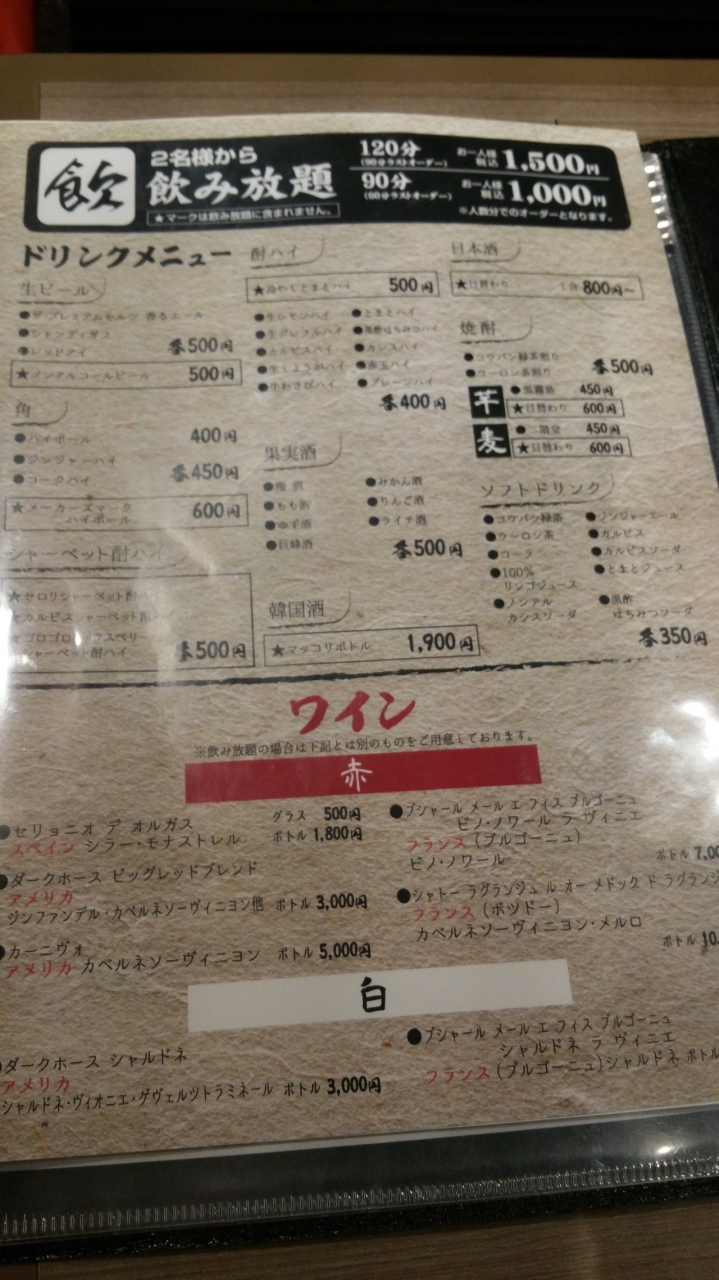 飲
2名様から
飲み放題
★マークは飲み放題に含まれません。
120分
(90分ラストオーダー)
お一人様
税込
1,500円
90分
(60分ラストオーダー)
お一人様
税込
1,000円
※人数分でのオーダーとなります。
ドリンクメニュー
生ビール
●ザ・プレミアムモルツ 香るエール
●シャンディガフ
●レッドアイ
各500円
★ノンアルコールビール 500円
角
●ハイボール 400円
●ジンジャーハイ
●コークハイ
各450円
★メーカーズマーク
ハイボール
600円
シャーベット酎ハイ
★セロリシャーベット酎ハイ
カルピスシャーベット酎ハイ
ゴロゴロ
シャーベット酎ハイ
各500円
酎ハイ
★冷やしとまとハイ 500円
●生レモンハイ
●生グレフルハイ
●カルピスハイ
●生しょうがハイ
●生わさびハイ
●とまとハイ
●黒酢はちみつハイ
●カシスハイ
●赤玉ハイ
●プレーンハイ
各400円
果実酒
●梅酒
●もも酒
●ゆず酒
●巨峰酒
●みかん酒
●りんご酒
●ライチ酒
各500円
韓国酒
★マッコリボトル 1,900円
日本酒
★日替わり 1合 800円~
焼酎
●コウバン緑茶割り
●ウーロン茶割り
各500円
芋
●黒霧島 450円
★日替わり 600円
麦
●二階堂 450円
★日替わり 600円
ソフトドリンク
●コウバン緑茶
●ウーロン茶
●コーラ
●100%
リンゴジュース
●ノンアル
カシスソーダ
●ジンジャーエール
●カルピス
●カルピスソーダ
●とまとジュース
●黒酢
はちみつソーダ
各350円
ワイン
※飲み放題の場合は下記とは別のものをご用意しております。
赤
●セリョニオ デ オルガス
スペイン シラー・モナストレル
グラス 500円
ボトル 1,800円
●ダークホース ビッグレッドブレンド
アメリカ
ジンファンデル・カベルネソーヴィニヨン他 ボトル 3,000円
●カーニヴォ
アメリカ カベルネソーヴィニヨン ボトル 5,000円
●ブシャール メール エ フィス ブルゴーニュ
ピノ・ノワール ラ ヴィニエ
フランス(ブルゴーニュ)
ピノ・ノワール
ボトル 7,00
●シャトー ラグランジュ ル オー メドック ド ラグランジ
フランス(ボツドー)
カベルネソーヴィニヨン・メルロ
ボトル 10,
白
ダークホース シャルドネ
アメリカ
シャルドネ・ヴィオニエ・ゲヴェルツトラミネール ボトル 3,000円
●ブシャール メール エ フィス ブルゴーニュ
シャルドネ ラ ヴィニエ
フランス(ブルゴーニュ)シャルドネ ボトル